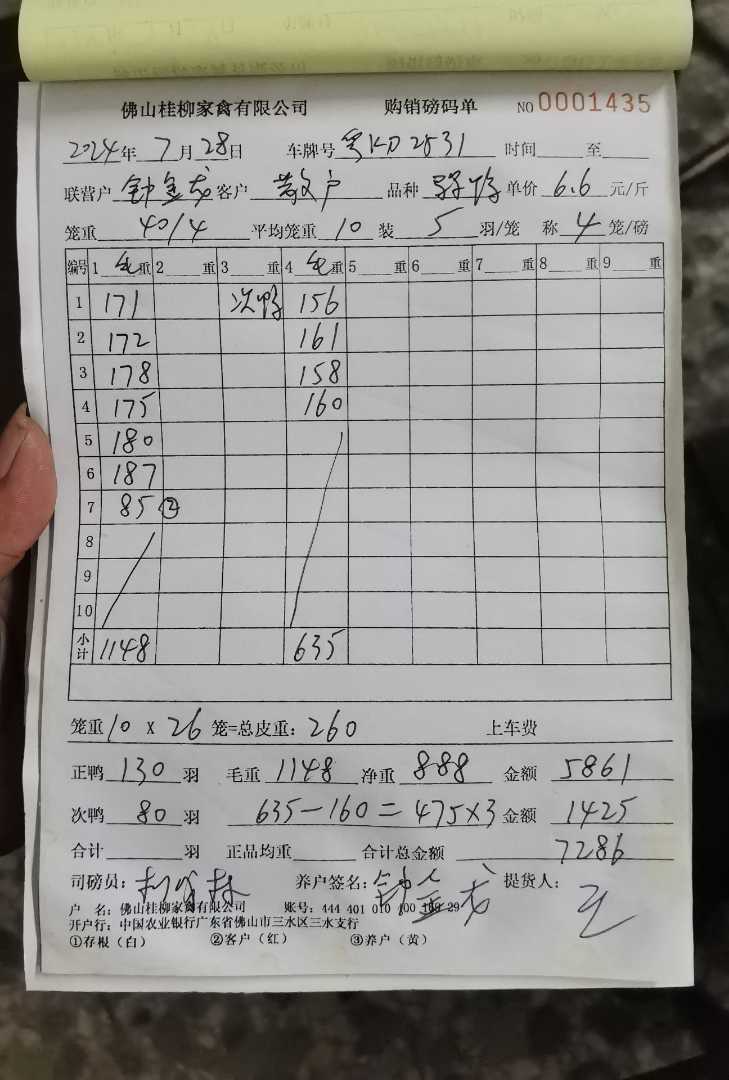 佛山桂柳家禽有限公司 购销磅码单 NO 0001435
2024年 7月28日 车牌号 粤KD2531 时间 至
联营户 钟金龙 客户 散户 品种 单价 6.6 元/斤
笼重 40/4 平均笼重 10 装 5 羽/笼 称 4 笼/磅
编号 1 毛重 2 重 3 重 4 毛重 5 重 6 重 7 重 8 重 9 重
1 171 次鸭 156
2 172 161
3 178 158
4 175 160
5 180
6 187
7 85 ②
8
9
10
小计 1148 635
笼重 10 X 26 笼=总皮重: 260 上车费
正鸭 130 羽 毛重 1148 净重 888 金额 5861
次鸭 80 羽 635-160=475×3 金额 1425
合计 羽 正品均重 合计总金额 7286
司磅员: 养户签名: 钟金龙 提货人:
户 名: 佛山桂柳家禽有限公司 账号: 444 401 010 400 199 29
开户行: 中国农业银行广东省佛山市三水区三水支行
①存根(白) ②客户(红) ③养户(黄)